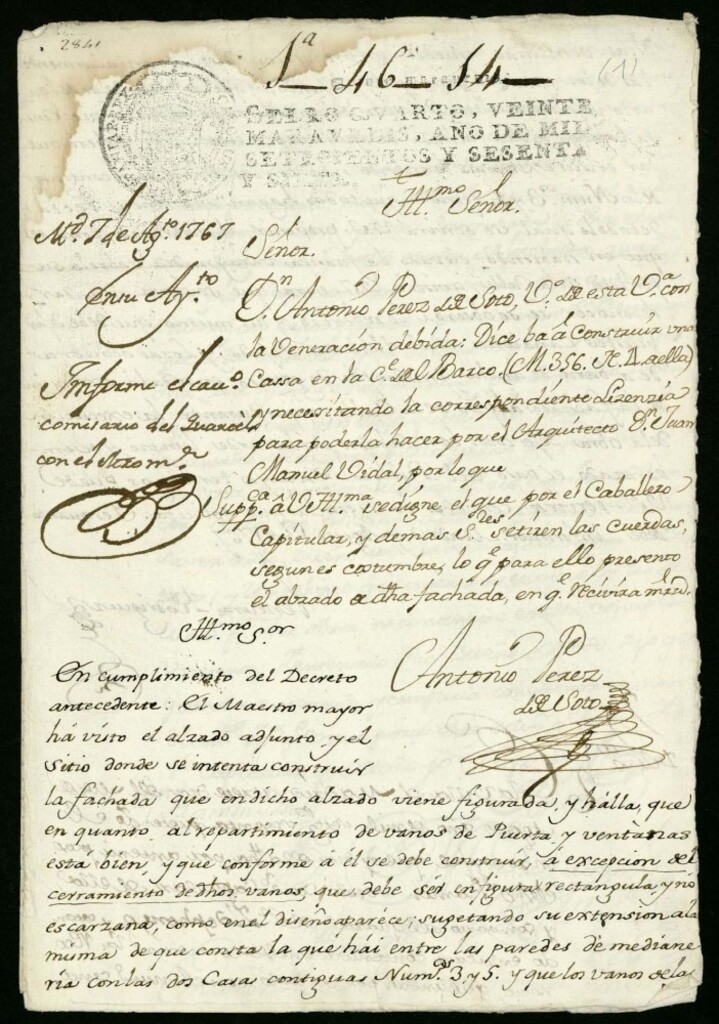 2841
1ª-46-54
(1)
SELLO QVARTO, VEINTE
MARAVEDIS, AÑO DE MIL
SETECIENTOS Y SESENTA
Y SIETE.
Ill.mo Señor.
M.d 7 de Ag.to 1767
Señor.
En su Ay.to
D.n Antonio Perez de Soto, V.o de esta V.a con
la Veneracion debida: Dice ba á Construir una
Informe el cav.o
Cassa en la C.e del Barco. (M. 356. N. 4. de ella)
comisario del Quartel
y necesitando la correspondiente Lizenzia
con el Mro m.r
para poderla hacer por el Arquitecto D.n Juan
Manuel Vidal, por lo que
Supp.ca â V. Ill.ma se digne el que por el Caballero
Capitular, y demas S.res se tiren las Cuerdas,
segun es costumbre, lo q.e para ello presento
el alzado de dha fachada, en q.e Recivira mrd.
Ill.mo S.or
Antonio Perez
de Soto
En cumplimiento del Decreto
antecedente: El Maestro mayor
há visto el alzado adjunto, y el
Sitio donde se intenta construir
la fachada que en dicho alzado viene figurada, y hálla, que
en quanto al repartimiento de vanos de Puerta y ventanas
está bien, y que conforme á él se debe construir, á excepcion del
cerramiento de dhos vanos, que debe sér en figura rectangula, y nó
escarzana, como en el diseño aparéce; sugetando su extension a la
misma de que consta la que hái entre las paredes de mediane
ría con las dos Casas contiguas Num.os 3. y 5. y que los vanos de las